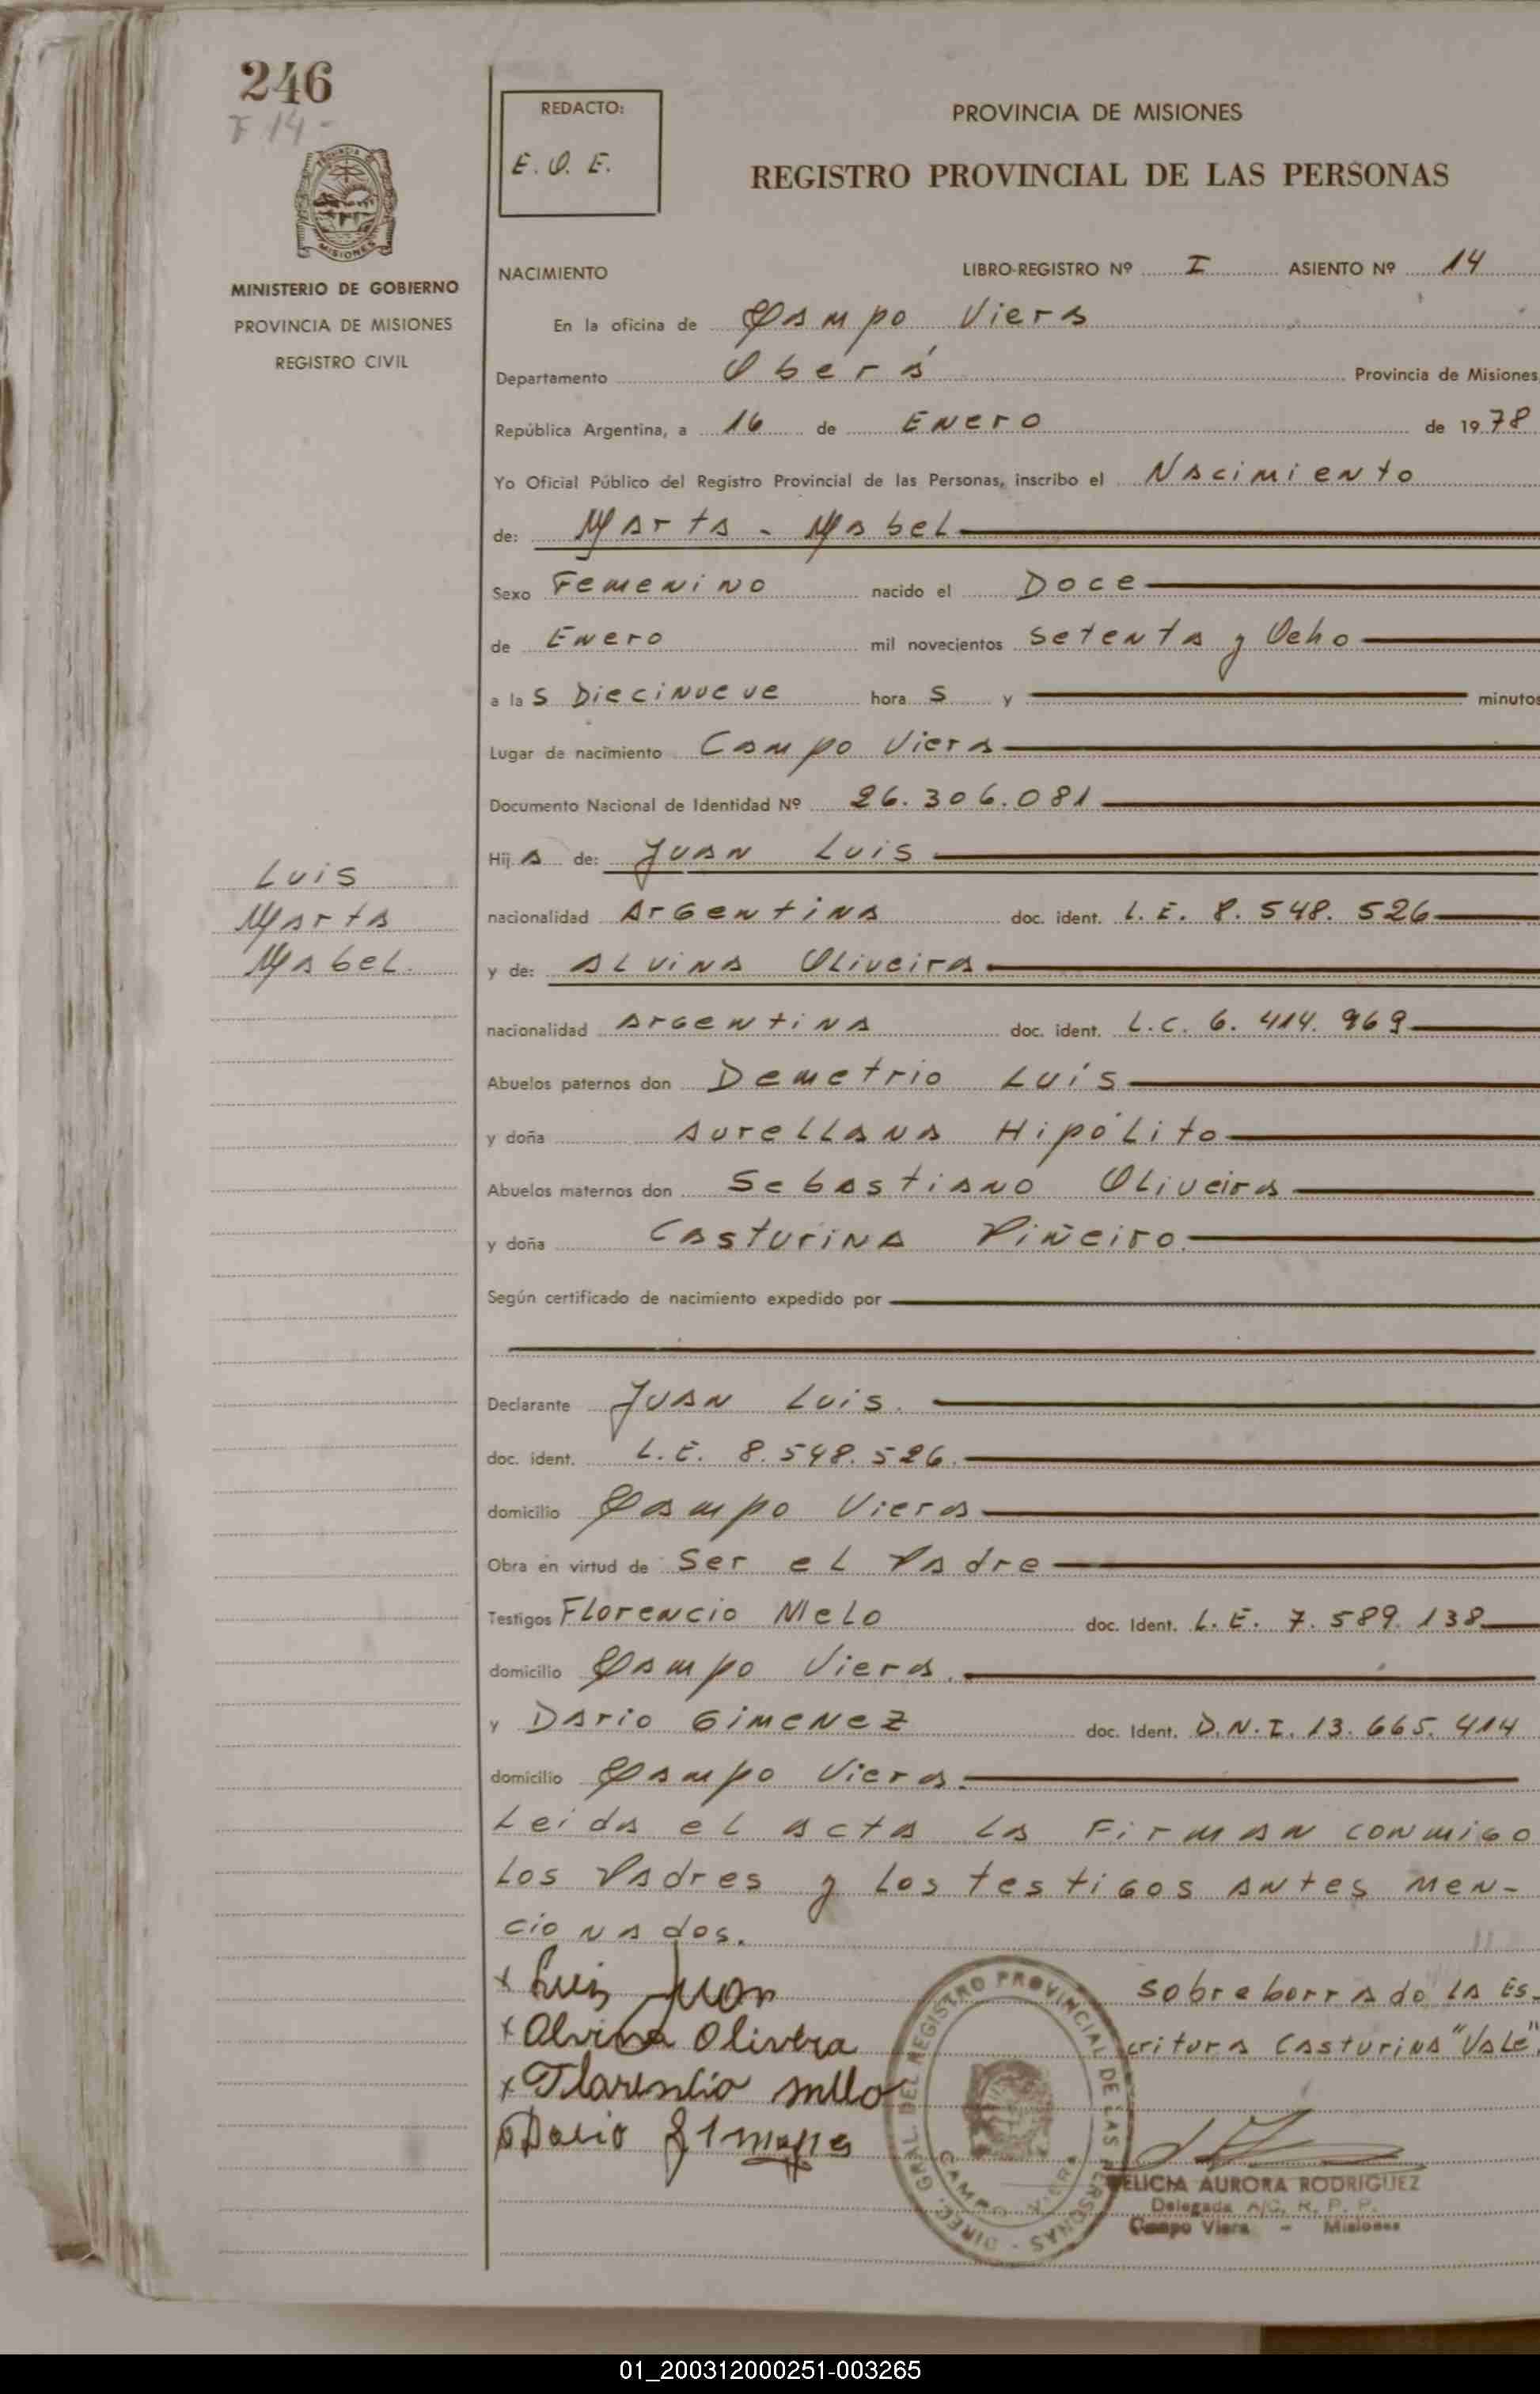 246
F 14 -
PROVINCIA DE
MISIONES
MINISTERIO DE GOBIERNO
PROVINCIA DE MISIONES
REGISTRO CIVIL
REDACTO:
E. O. E.
PROVINCIA DE MISIONES
REGISTRO PROVINCIAL DE LAS PERSONAS
NACIMIENTO LIBRO-REGISTRO Nº I ASIENTO Nº 14
En la oficina de Campo Viera
Departamento Oberá Provincia de Misiones,
República Argentina, a 16 de Enero de 1978
Yo Oficial Público del Registro Provincial de las Personas, inscribo el Nacimiento
de: Marta - Mabel
Sexo Femenino nacido el Doce
de Enero mil novecientos setenta y Ocho
a la s Diecinueve hora s y minutos
Lugar de nacimiento Campo Viera
Documento Nacional de Identidad Nº 26.306.081
Hij a de: Juan Luis
nacionalidad Argentina doc. ident. L. E. 8. 548. 526
y de: Alvina Oliveira
nacionalidad Argentina doc. ident. L.C. 6. 414. 969
Abuelos paternos don Demetrio Luis
y doña Aurellana Hipólito
Abuelos maternos don Sebastiano Oliveira
y doña Casturina Piñeiro.
Según certificado de nacimiento expedido por
Declarante Juan Luis.
doc. ident. L. E. 8. 548. 526.
domicilio Campo Viera
Obra en virtud de Ser el Padre
Testigos Florencio Melo doc. Ident. L. E. 7. 589. 138
domicilio Campo Viera.
y Dario Gimenez doc. Ident. D.N.I. 13. 665. 414
domicilio Campo Viera.
Leida el acta la Firman conmigo
los Padres y los testigos antes men-
cionados.
Luis
Marta
Mabel.
x Luis Juan
x Alvina Olivera
x Florencio Mello
Dario
sobreborrado la Es-
critura Casturina "Vale".
DIREC. GRAL DEL REGISTRO PROVINCIAL DE LAS PERSONAS -
CAMPO VIERA
FELICIA AURORA RODRIGUEZ
Delegada A/C. R. P. P.
Campo Viera - Misiones
01_200312000251-003265